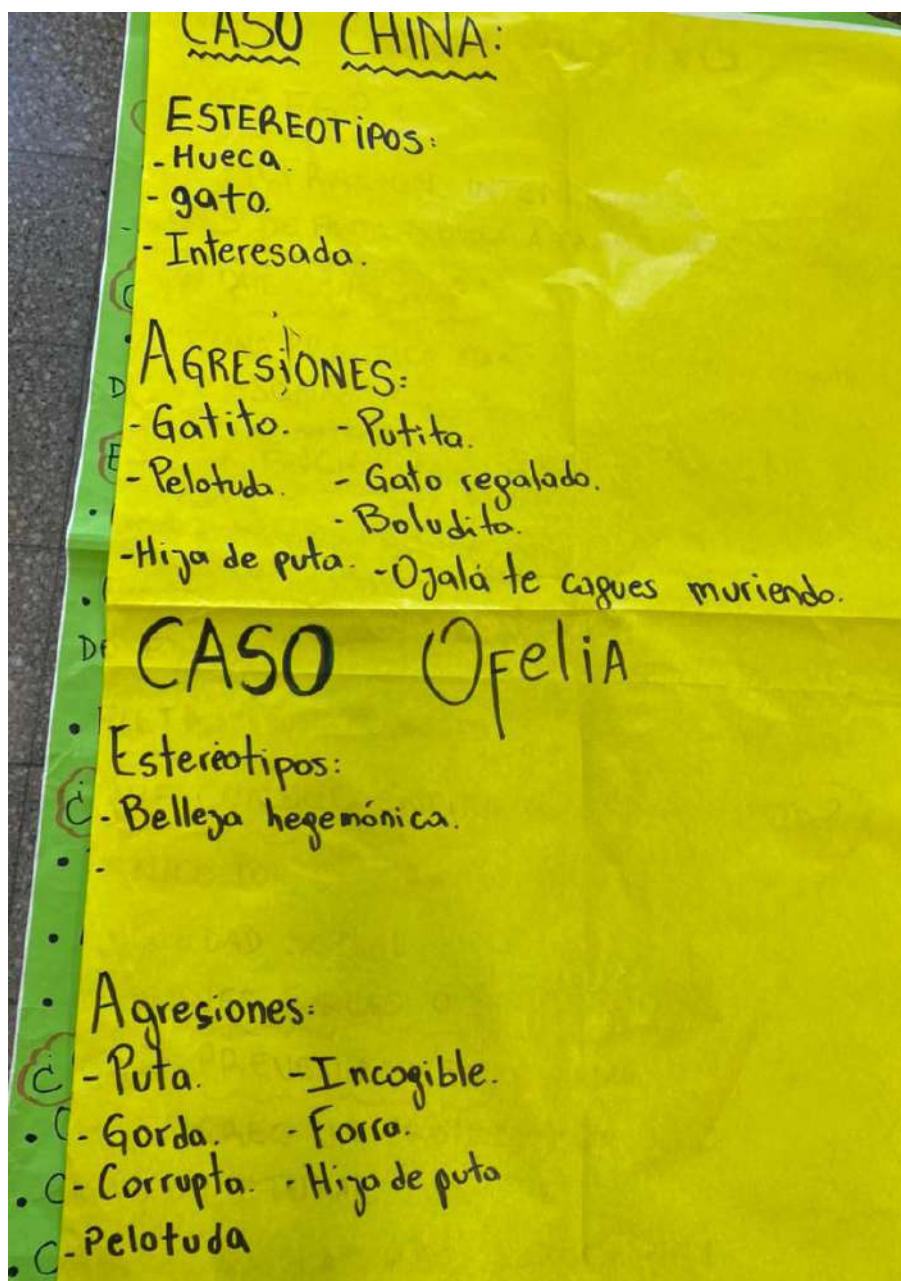 CASO CHINA:
ESTEREOTIPOS:
- Hueca.
- gato.
- Interesada.
AGRESIONES:
- Gatito. - Putita.
- Pelotuda. - Gato regalado.
- Boludita.
- Hija de puta. - Ojalá te cagues muriendo.
CASO OfeliA
Estereotipos:
- Belleza hegemónica.
-
Agresiones:
- Puta. - Incogible.
- Gorda. - Forra.
- Corrupta. - Hija de puta
- Pelotuda